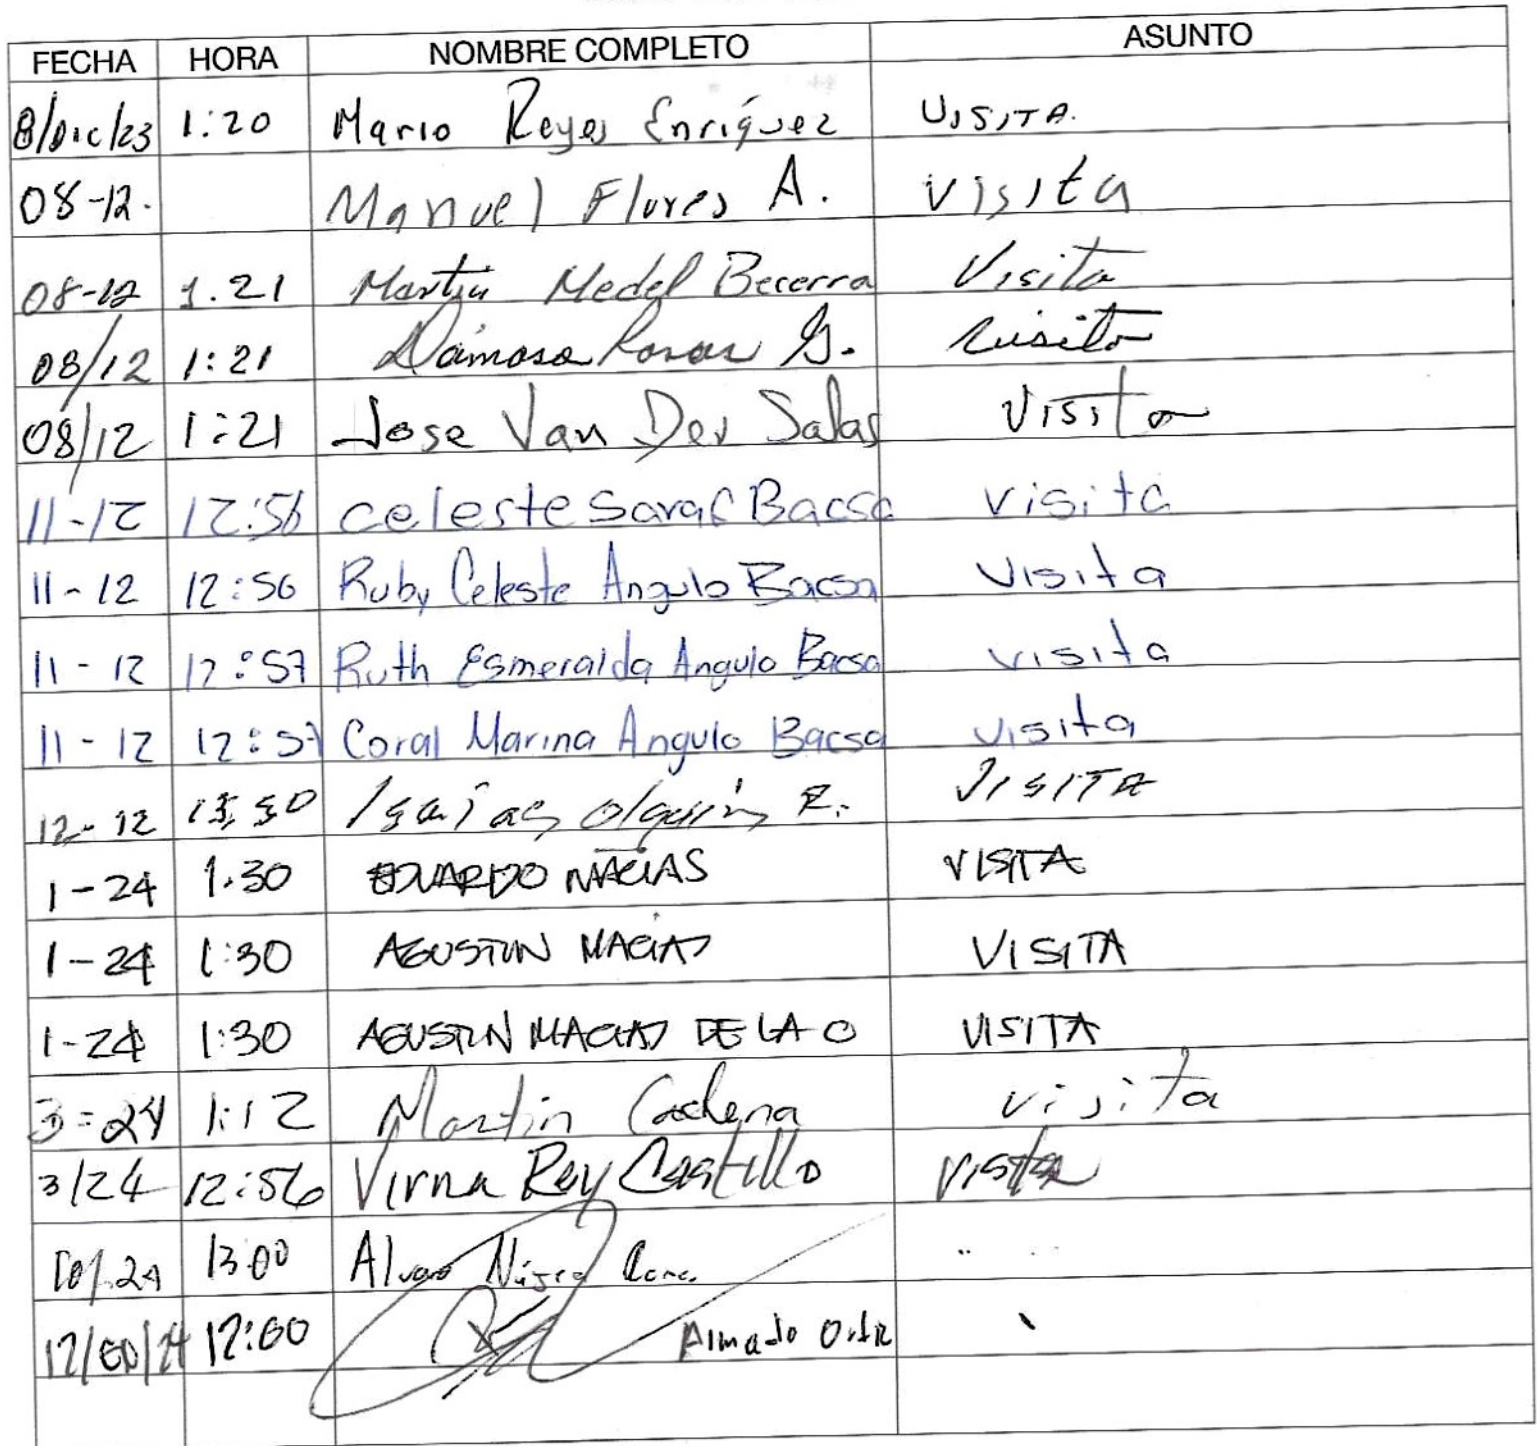 FECHA HORA NOMBRE COMPLETO ASUNTO
8/Dic/23 1:20 Mario Reyes Enríquez VISITA.
08-12. Manuel Flores A. visita
08-12 1.21 Martin Medel Becerra Visita
08/12 1:21 Dámaso Rosas G. visita
08/12 1:21 Jose Van Der Salas Visita
11-12 12:56 Celeste Sarai Bacsa visita
11-12 12:56 Ruby Celeste Angulo Bacsa Visita
11-12 12:57 Ruth Esmeralda Angulo Bacsa visita
11-12 12:57 Coral Marina Angulo Bacsa visita
12-12 Isaías Olguín R. VISITA
1-24 1.30 EDUARDO MACIAS VISITA
1-24 1:30 AGUSTIN MACIAS VISITA
1-24 1:30 AGUSTIN MACIAS DE LA O VISITA
3=24 1:12 Martin Cadena visita
3/24 12:56 Virna Rey Castillo visita
13:00 Alvaro
12:00 Ortiz